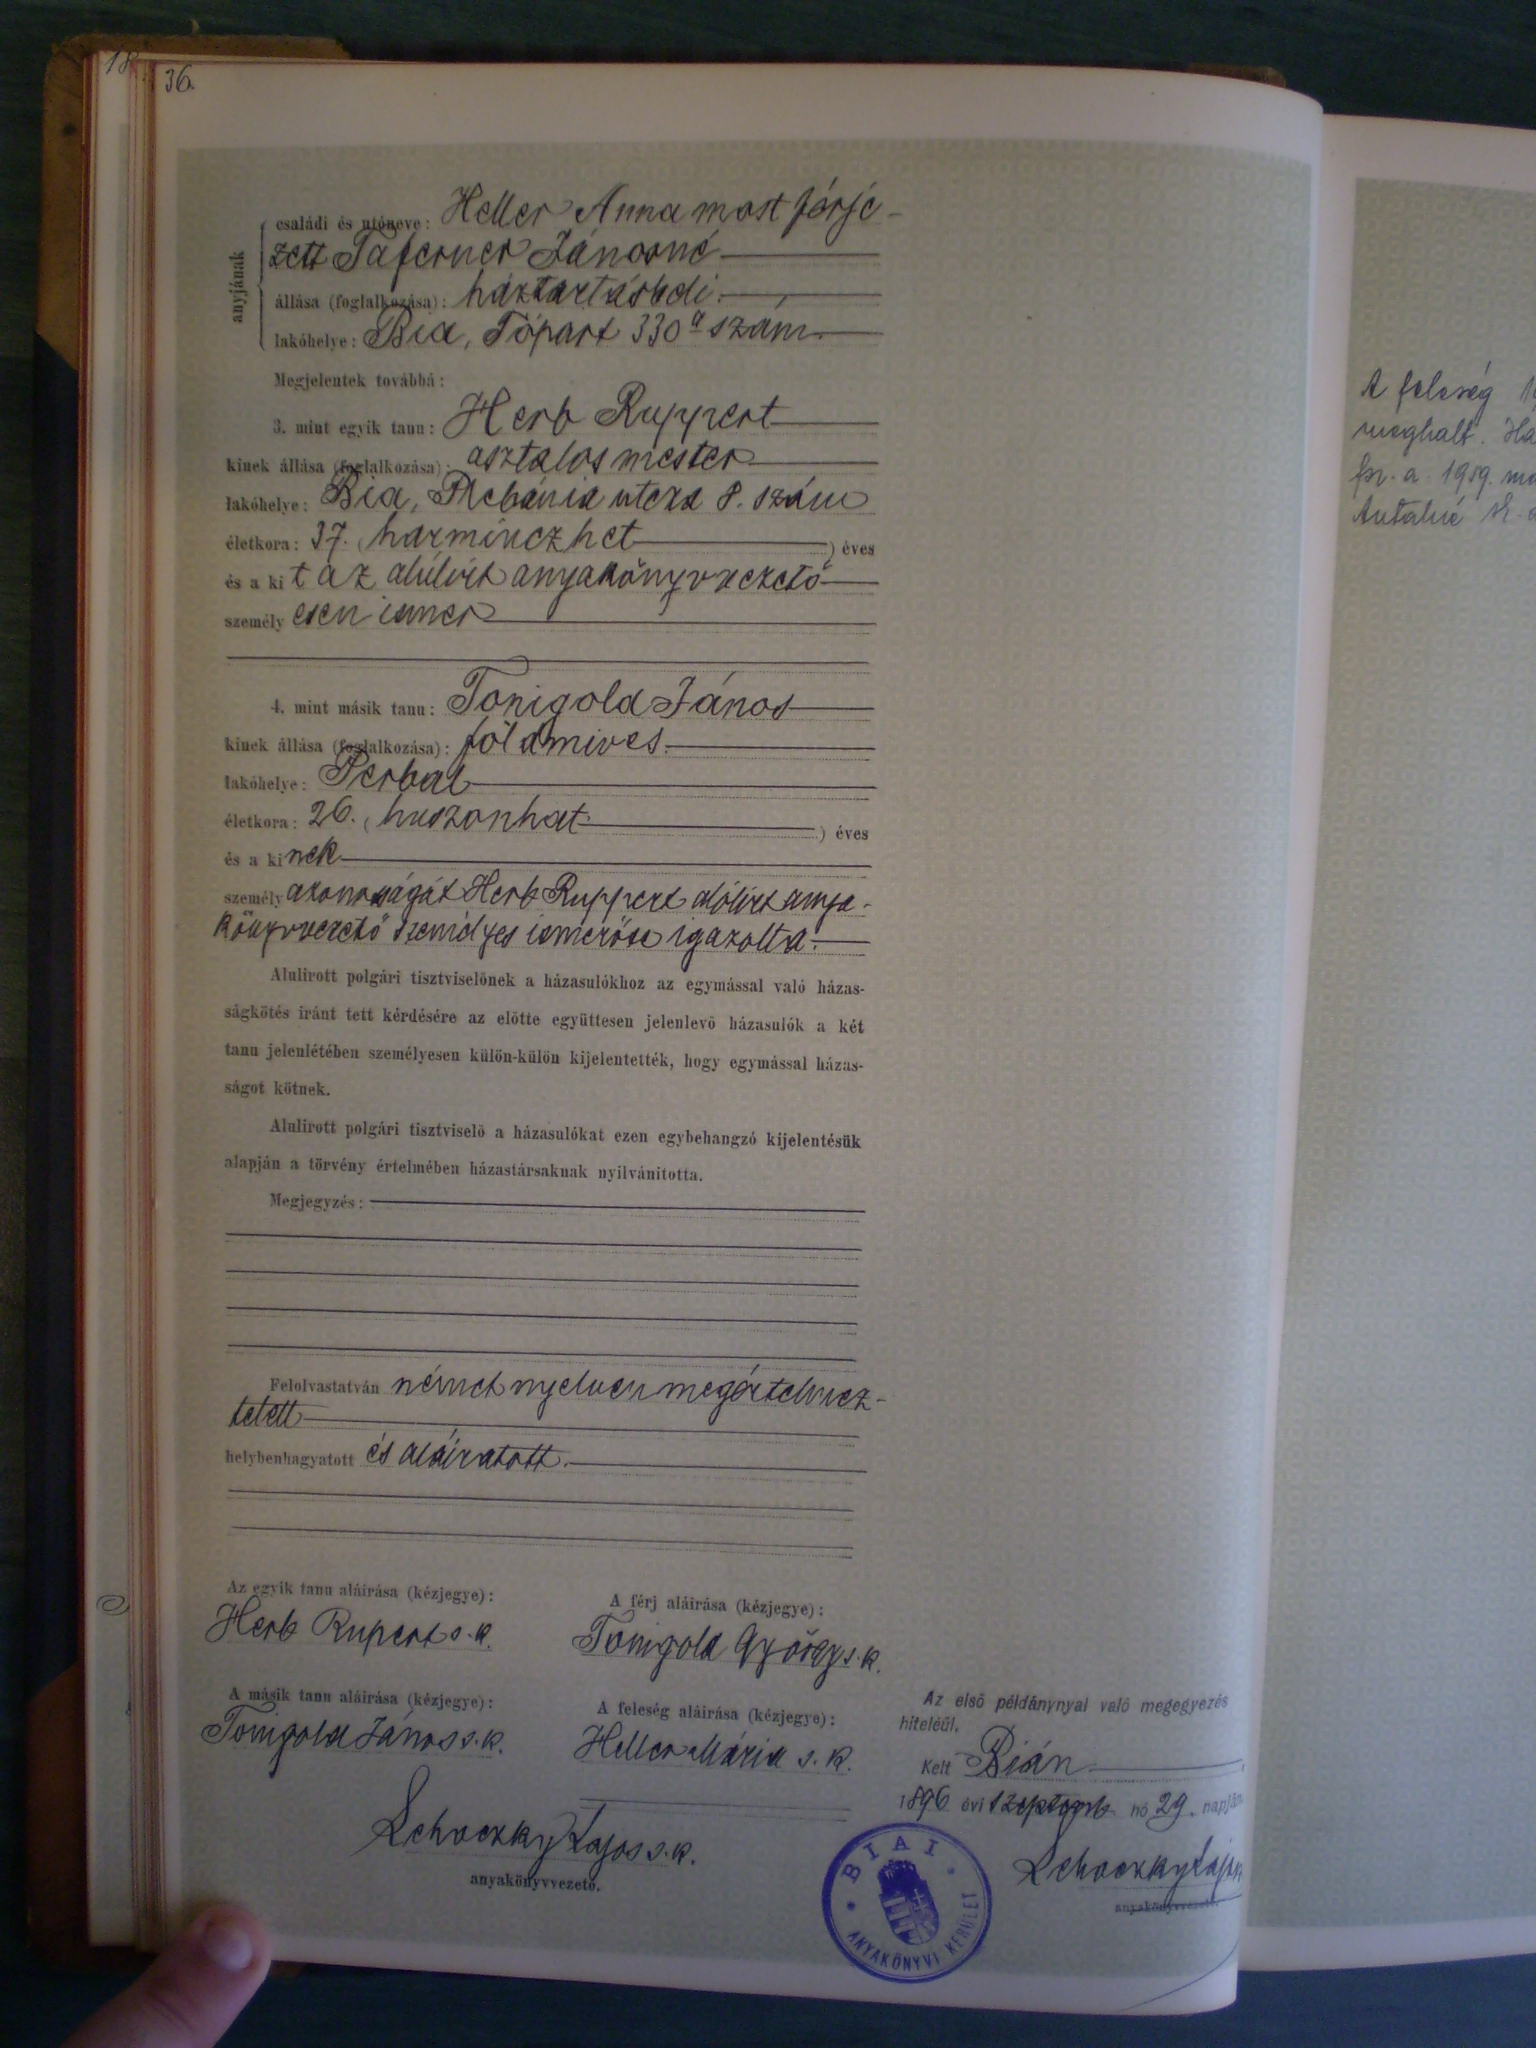 18
36.
anyjának
családi és utóneve: Heller Anna most férje-
zett Taferner Jánosné
állása (foglalkozása): háztartásbeli.
lakóhelye: Bia, Tópart 330a szám.
Megjelentek továbbá:
3. mint egyik tanu: Herb Ruppert
kinek állása (foglalkozása): asztalosmester
lakóhelye: Bia, Plebánia utcza 8. szám
életkora: 37. (harminczhet) éves
és a ki t az alulírt anyakönyvvezető
személy esen ismer
4. mint másik tanu: Tonigold János
kinek állása (foglalkozása): földmives.
lakóhelye: Perbal
életkora: 26. (huszonhat) éves
és a ki nek
személy azonoságát Herb Ruppert alólirt anya-
könyvvezető személyes ismerőse igazolta.
Alulirott polgári tisztviselőnek a házasulókhoz az egymással való házas-
ságkötés iránt tett kérdésére az előtte együttesen jelenlevő házasulók a két
tanu jelenlétében személyesen külön-külön kijelentették, hogy egymással házas-
ságot kötnek.
Alulirott polgári tisztviselő a házasulókat ezen egybehangzó kijelentésük
alapján a törvény értelmében házastársaknak nyilvánitotta.
Megjegyzés:
Felolvastatván német nyelven megértelmez-
tetett
helybenhagyatott és aláiratott.
Az egyik tanu aláirása (kézjegye):
Herb Rupert s. k.
A férj aláirása (kézjegye):
Tonigold György s. k.
A másik tanu aláirása (kézjegye):
Tonigold János s. k.
A feleség aláirása (kézjegye):
Heller Mária s. k.
Lehoczky Lajos s. k.
anyakönyvvezető.
Az első példánynyal való megegyezés
hiteléül.
Kelt Bián
1896 évi szeptemb. hó 29. napján
Lehoczky Lajos
anyakönyvvezető.
BIAI
ANYAKÖNYVI KERÜLET
A feleség
meghalt.
1959.
Antalné